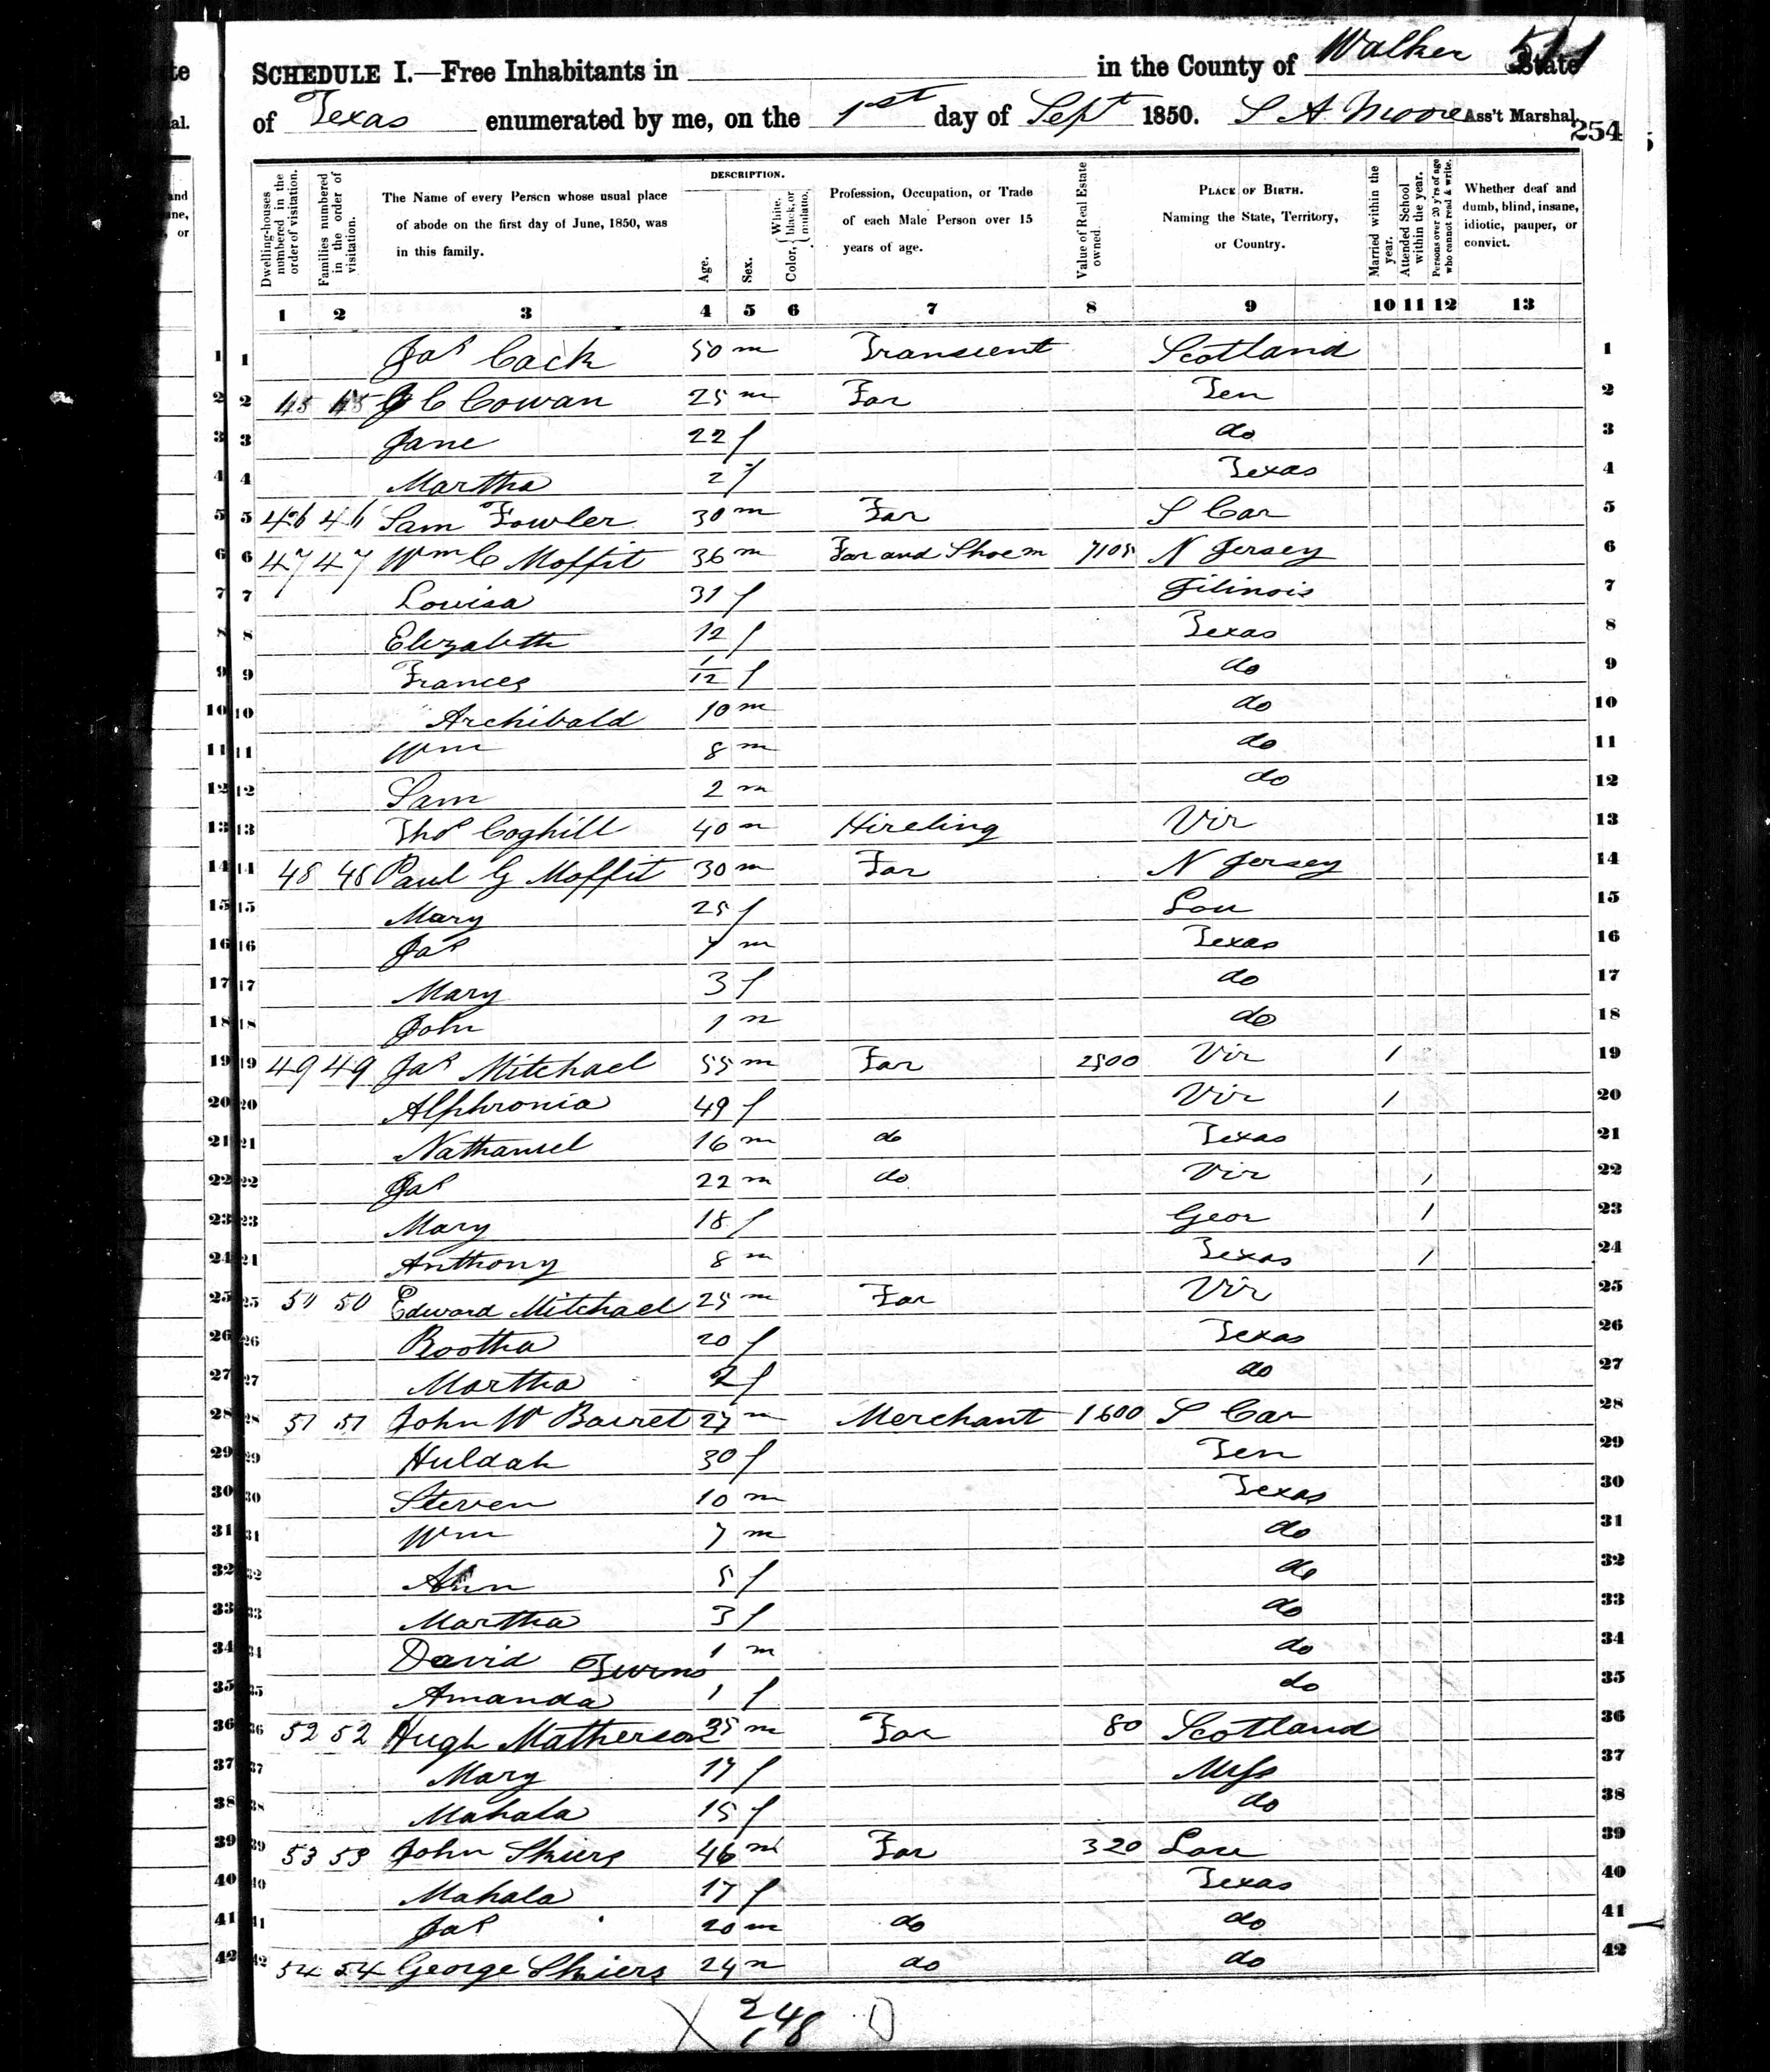 te
al.
and
ine,
or
511
SCHEDULE I.—Free Inhabitants in in the County of Walker State
of Texas enumerated by me, on the 1st day of Sept 1850. S A Moore Ass't Marshal.
254
Dwelling-houses numbered in the order of visitation.
Families numbered in the order of visitation.
The Name of every Person whose usual place of abode on the first day of June, 1850, was in this family.
DESCRIPTION.
Age.
Sex.
Color, { White, black, or mulatto.
Profession, Occupation, or Trade of each Male Person over 15 years of age.
Value of Real Estate owned.
PLACE OF BIRTH. Naming the State, Territory, or Country.
Married within the year.
Attended School within the year.
Persons over 20 y'rs of age who cannot read & write.
Whether deaf and dumb, blind, insane, idiotic, pauper, or convict.
1 2 3 4 5 6 7 8 9 10 11 12 13
1 1 Jas Cack 50 m Transcent Scotland 1
2 2 45 45 J C Cowan 25 m Far Ten 2
3 3 Jane 22 f do 3
4 4 Martha 2 f Texas 4
5 5 46 46 Sam Fowler 30 m Far S Car 5
6 6 47 47 Wm C Moffit 36 m Far and Shoem 7105 N Jersey 6
7 7 Louisa 31 f Jilinois 7
8 8 Elizabeth 12 f Texas 8
9 9 Frances 1/12 f do 9
10 10 Archibald 10 m do 10
11 11 Wm 8 m do 11
12 12 Sam 2 m do 12
13 13 Thos Coghill 40 m Hireling Vir 13
14 14 48 48 Paul G Moffit 30 m Far N Jersey 14
15 15 Mary 25 f Lou 15
16 16 Jas m Texas 16
17 17 Mary 3 f do 17
18 18 John 1 m do 18
19 19 49 49 Jas Mitchael 55 m Far 2500 Vir 1 19
20 20 Alphronia 49 f Vir 1 20
21 21 Nathaniel 16 m do Texas 21
22 22 Jas 22 m do Vir 1 22
23 23 Mary 18 f Geor 1 23
24 24 Anthony 8 m Texas 1 24
25 25 50 50 Edward Mitchael 25 m Far Vir 25
26 26 Bootha 20 f Texas 26
27 27 Martha 2 f do 27
28 28 51 51 John W Barret 27 m Merchant 1600 S Car 28
29 29 Huldah 30 f Ten 29
30 30 Steven 10 m Texas 30
31 31 Wm 7 m do 31
32 32 Ann 5 f do 32
33 33 Martha 3 f do 33
34 34 David 1 m do 34
Twins
35 35 Amanda 1 f do 35
36 36 52 52 Hugh Matherson 35 m Far 80 Scotland 36
37 37 Mary 17 f Miss 37
38 38 Mahala 15 f do 38
39 39 53 53 John Skiers 46 m Far 320 Lou 39
40 40 Mahala 17 f Texas 40
41 41 Jas 20 m do do 41
42 42 54 54 George Skiers 24 m do do 42